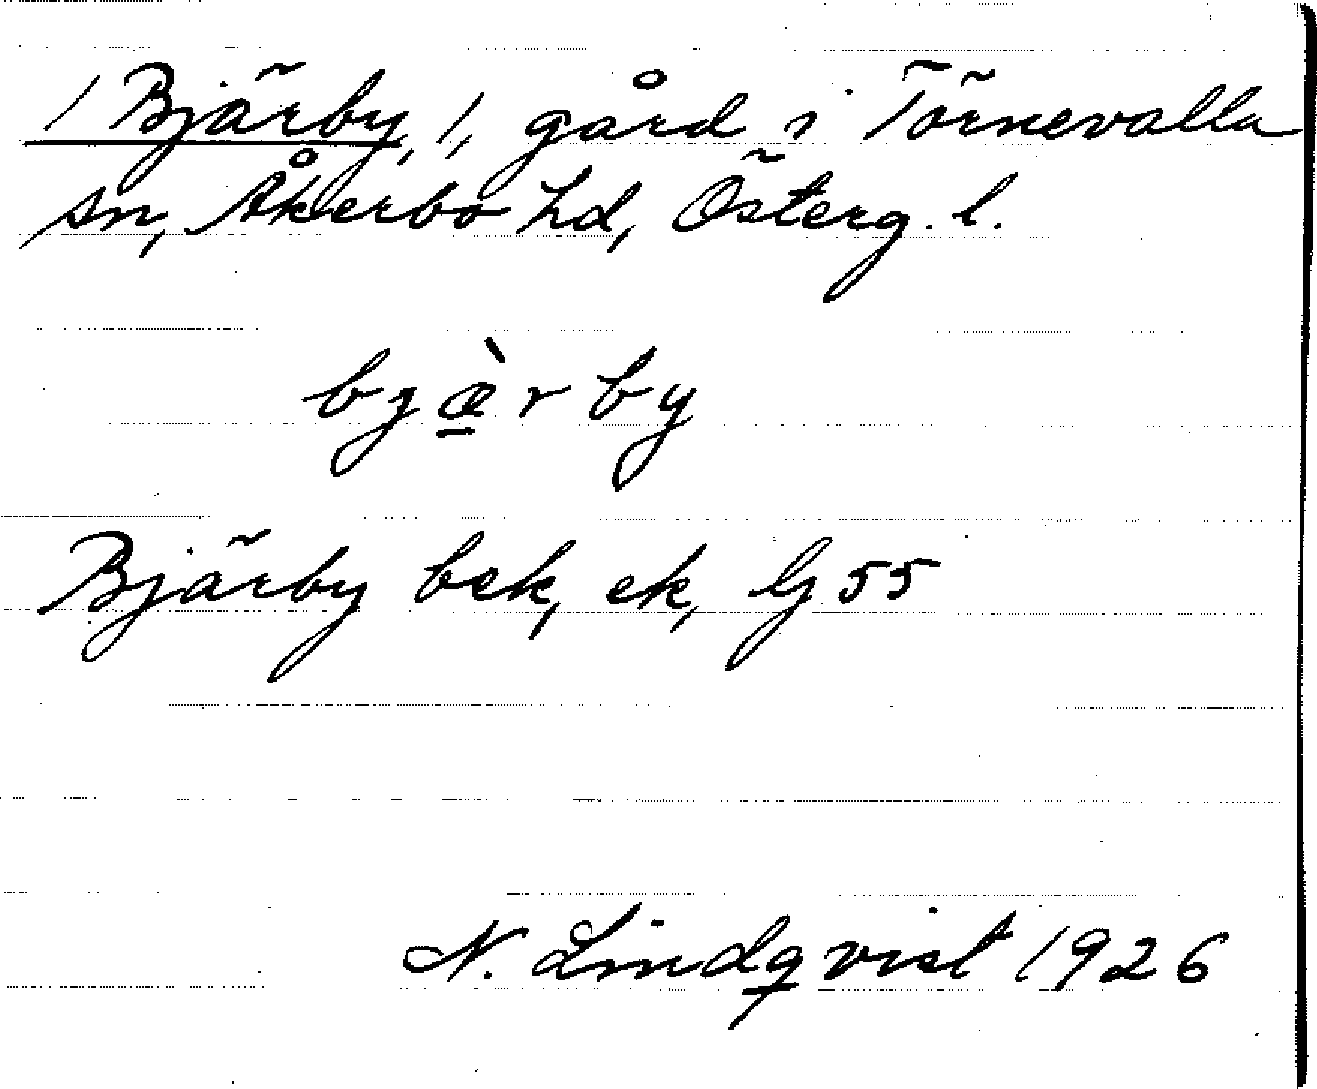 / Bjärby, /, gård i Törnevalla
sn, Åkerbo hd, Österg. l.
bjæ̀rby
Bjärby bek, ek, Gj 55
N. Lindqvist 1926